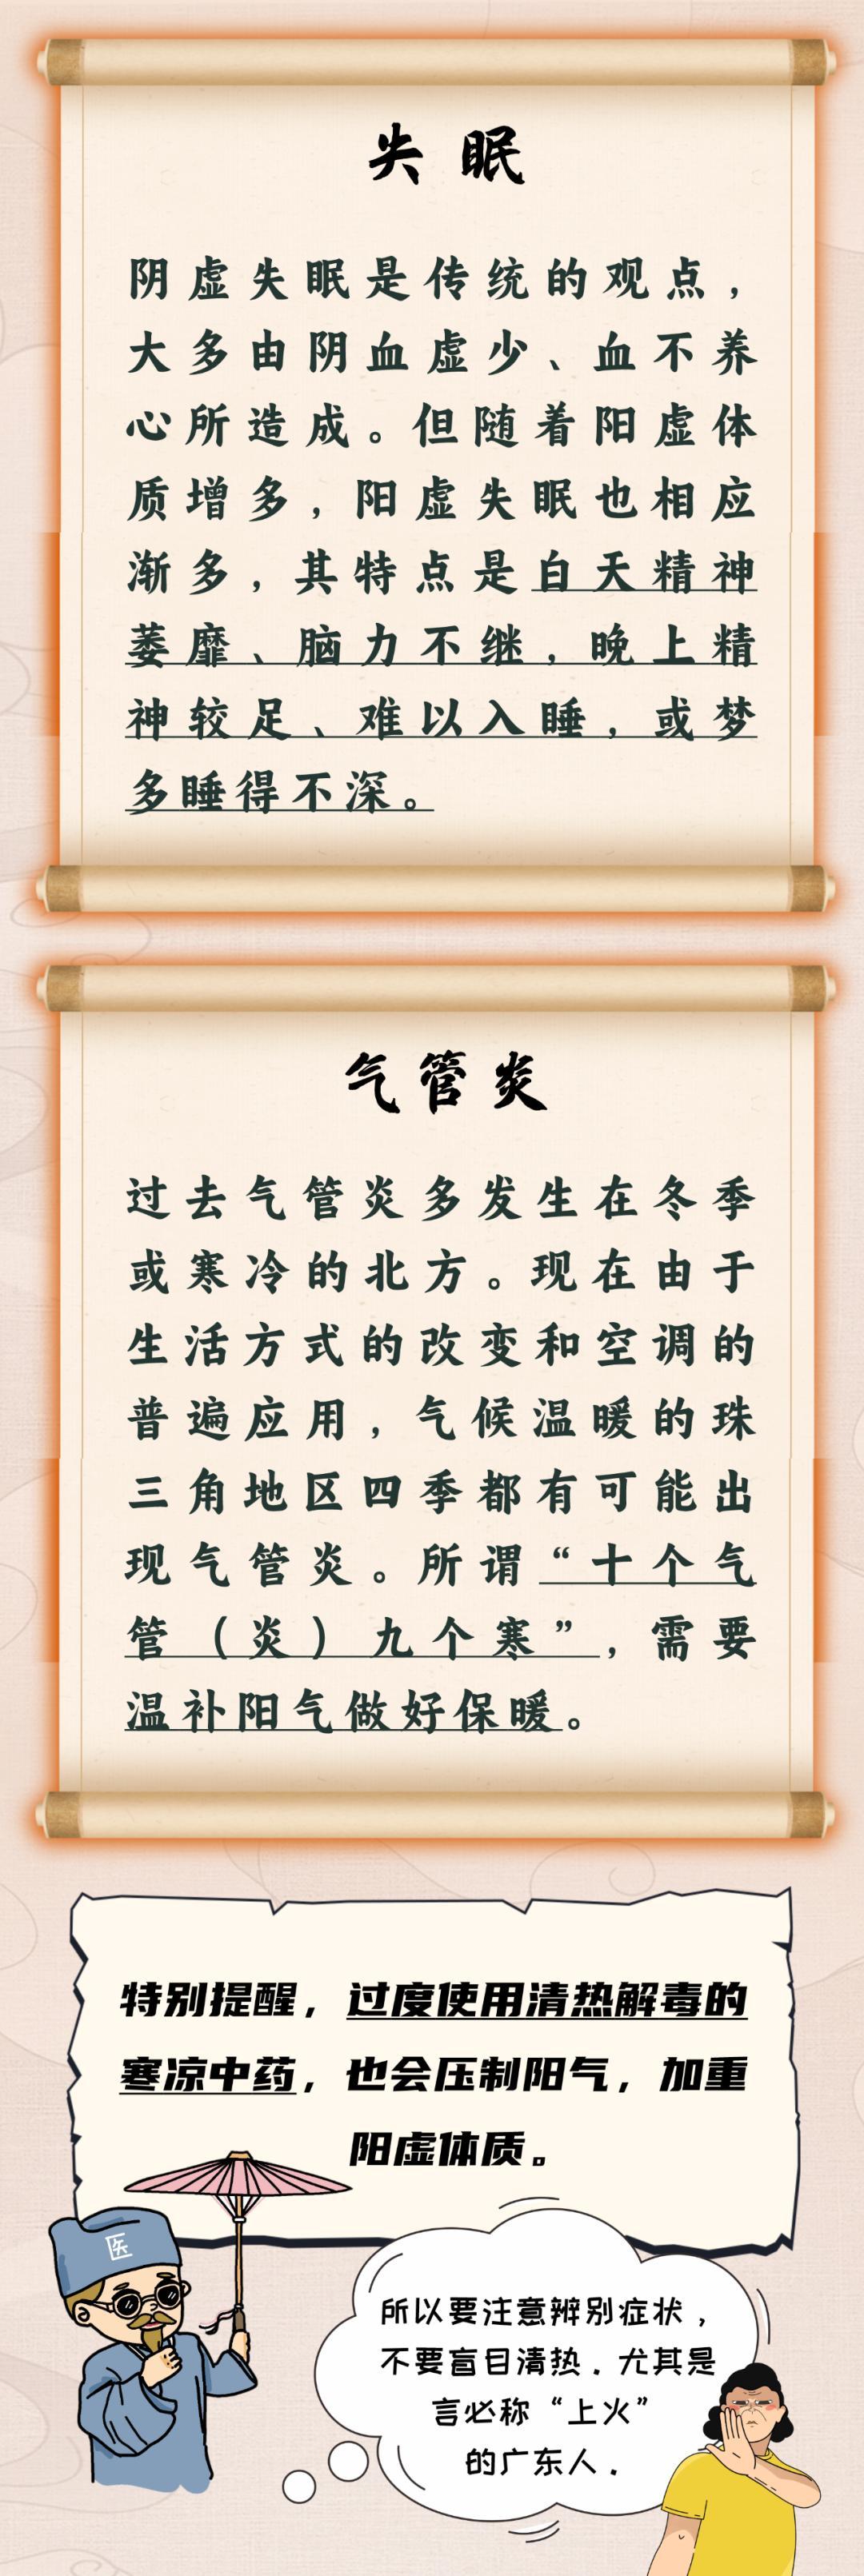 失眠
阴虚失眠是传统的观点，
大多由阴血虚少、血不养
心所造成。但随着阳虚体
质增多，阳虚失眠也相应
渐多，其特点是白天精神
萎靡、脑力不继，晚上精
神较足、难以入睡，或梦
多睡得不深。
气管炎
过去气管炎多发生在冬季
或寒冷的北方。现在由于
生活方式的改变和空调的
普遍应用，气候温暖的珠
三角地区四季都有可能出
现气管炎。所谓“十个气
管（炎）九个寒”，需要
温补阳气做好保暖。
特别提醒，过度使用清热解毒的
寒凉中药，也会压制阳气，加重
阳虚体质。
医
所以要注意辨别症状，
不要盲目清热．尤其是
言必称“上火”
的广东人．